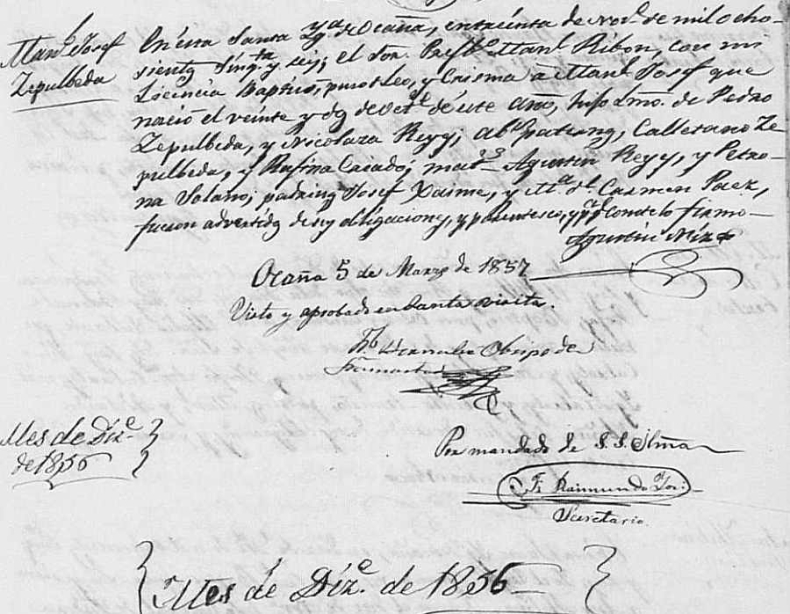 Man.l Josef
Zepulbeda
En esta Santa Yg.a de Ocaña, en treinta de Nov.e de mil ocho-
sientos sinq.ta y seis; el Sor. Presb.o Man.l Ribon, con mi
Licencia Baptisó, puso oleo, y Crisma a Man.l Josef que
nació el veinte y dos de oct.e de este año, hijo lmo. de Pedro
Zepulbeda, y Nicolaza Reyes; ab.s paternos, Calletano Ze-
pulbeda, y Rufina Caiado; mat.s Agustin Reyes, y Petro-
na Solano; padrinos Josef Xaime, y M.a del Carmen Paez,
fueron advertidos de sus obligaciones, y parentesco, y p.a q.e conste lo firmo-
Agustin
Ocaña 5 de Marzo de 1857
Visto y aprobado en Santa visita.
Fr. Bernabe Obispo de
Por mandado de S. S. Ilma
Fr Raimundo
Secretario.
Mes de Diz.e
de 1856
Mes de Diz.e de 1856